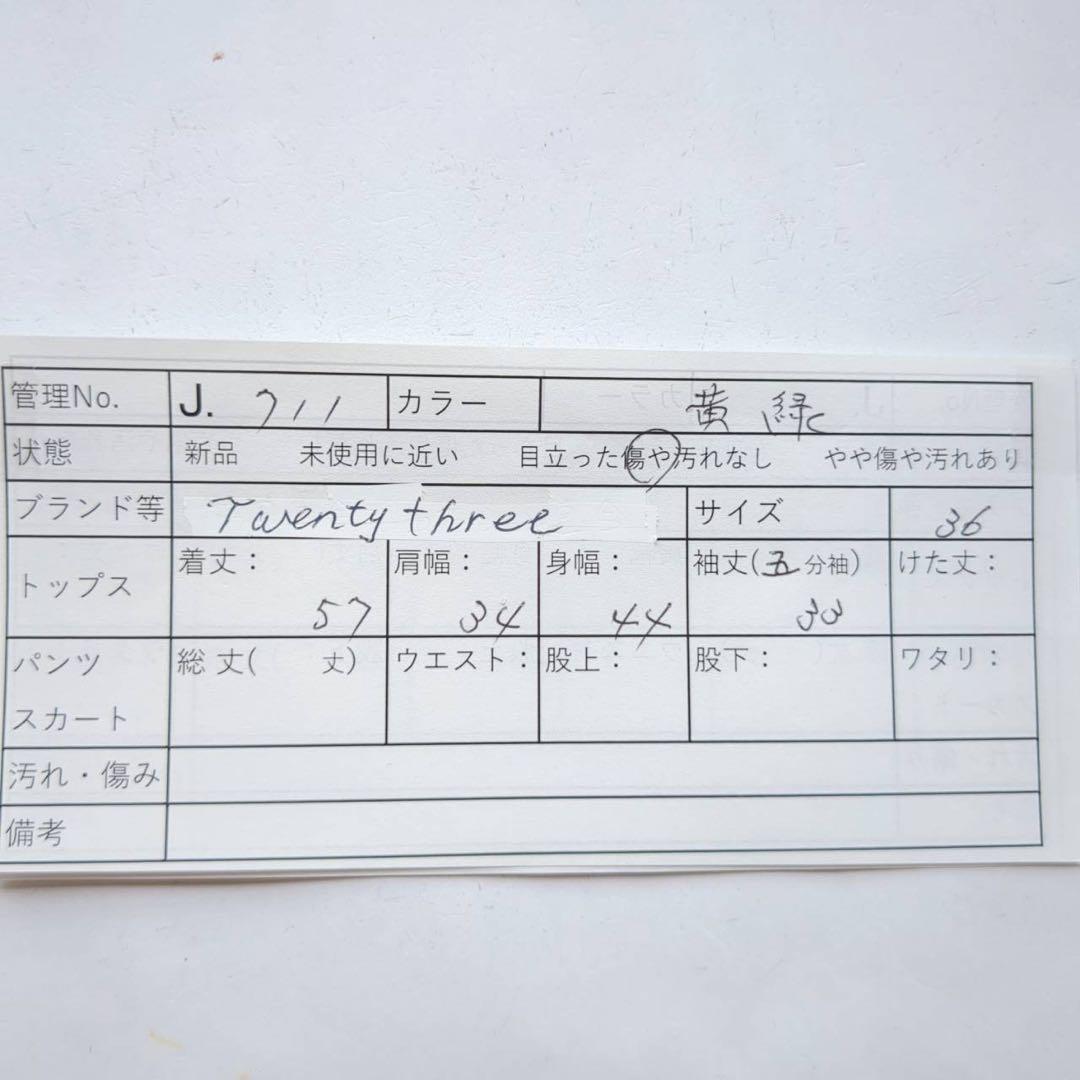 管理No. J. 711 カラー 黄緑
状態 新品 未使用に近い 目立った傷や汚れなし やや傷や汚れあり
ブランド等 Twenty three サイズ 36
トップス 着丈： 57 肩幅： 34 身幅： 44 袖丈(五分袖) 33 けた丈：
パンツ 総丈( 丈) ウエスト： 股上： 股下： ワタリ：
スカート
汚れ・傷み
備考